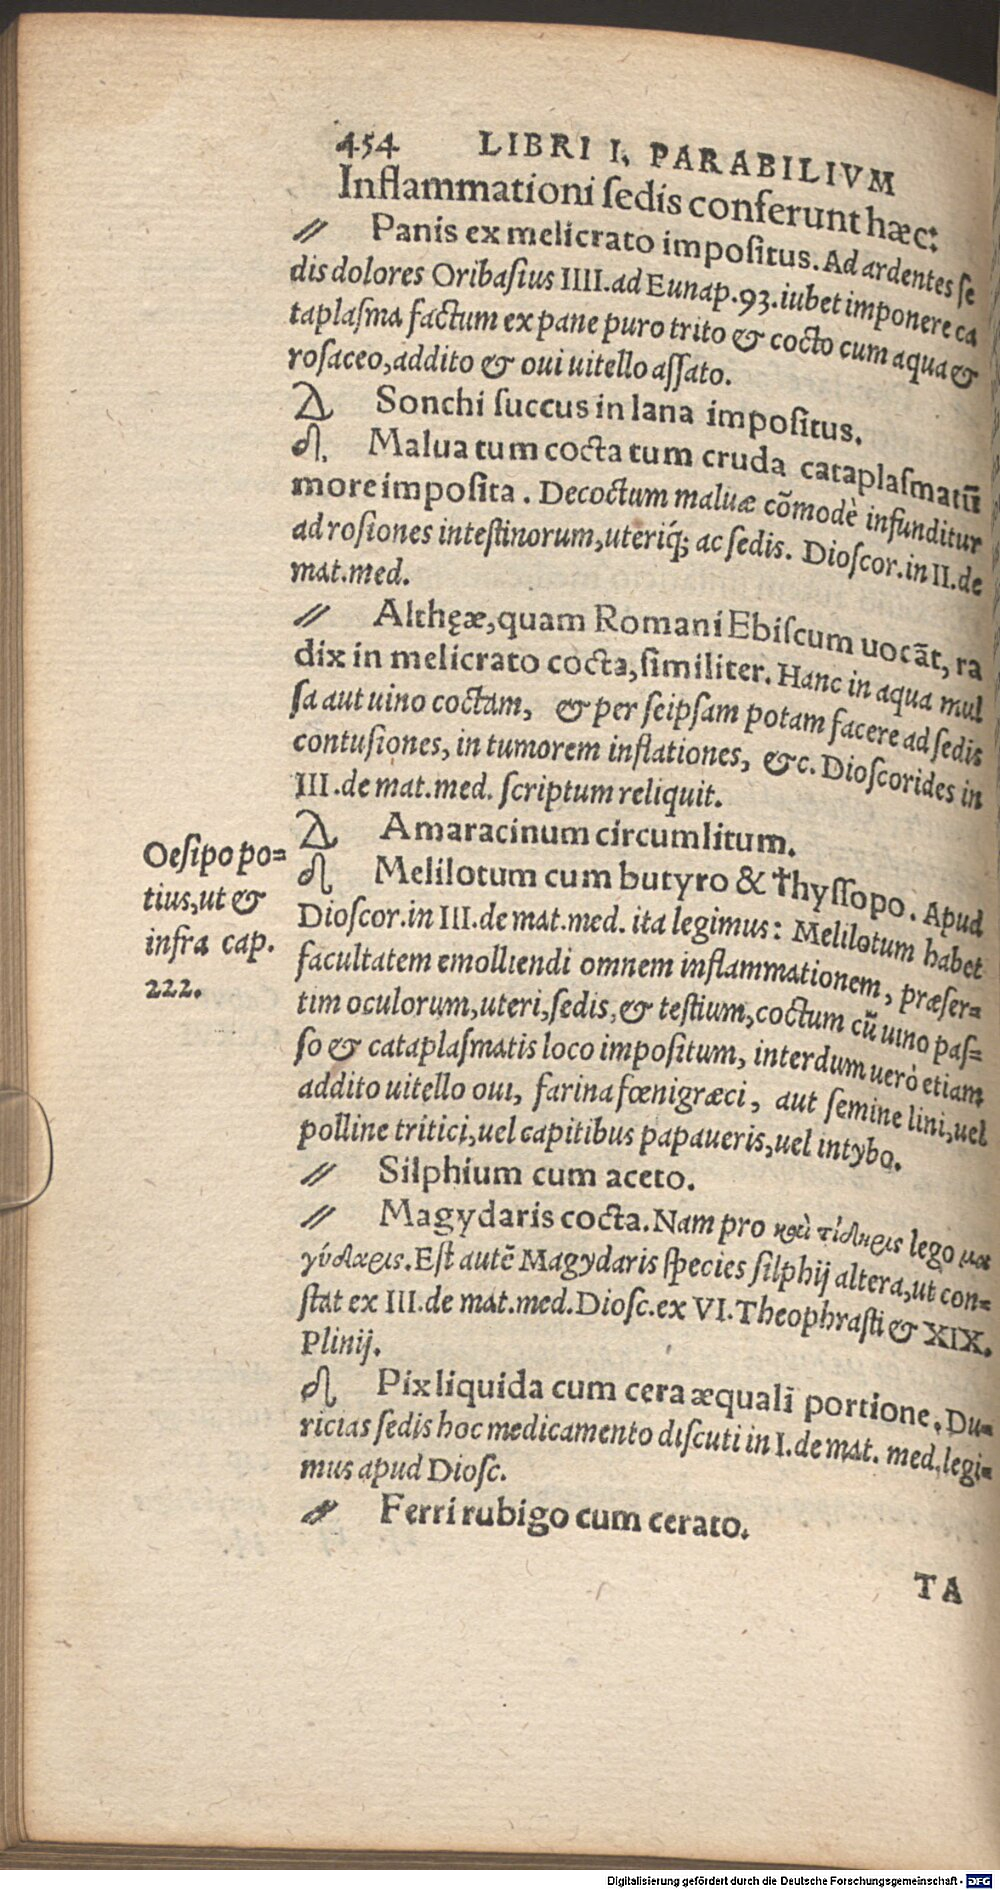 454 LIBRI I. PARABILIVM
Inflammationi ſedis conferunt hæc:
⫽ Panis ex melicrato impoſitus. Ad ardentes ſe
dis dolores Oribaſius IIII. ad Eunap. 93. iubet imponere ca
taplaſma factum ex pane puro trito & cocto cum aqua &
roſaceo, addito & oui uitello aſſato.
Sonchi ſuccus in lana impoſitus.
Malua tum cocta tum cruda cataplaſmatū
more impoſita. Decoctum maluæ cōmodè infunditur
ad roſiones inteſtinorum, uteriq́; ac ſedis. Dioſcor. in II. de
mat. med.
⫽ Althęæ, quam Romani Ebiſcum uocāt, ra
dix in melicrato cocta, ſimiliter. Hanc in aqua mul
ſa aut uino coctam, & per ſeipſam potam facere ad ſedis
contuſiones, in tumorem inflationes, &c. Dioſcorides in
III. de mat. med. ſcriptum reliquit.
Amaracinum circumlitum.
Melilotum cum butyro & †hyſſopo. Apud
Dioſcor. in III. de mat. med. ita legimus: Melilotum habet
facultatem emolliendi omnem inflammationem, præſer=
tim oculorum, uteri, ſedis, & teſtium, coctum cū uino paſ=
ſo & cataplaſmatis loco impoſitum, interdum uerò etiam
addito uitello oui, farina fœnigræci, aut ſemine lini, uel
polline tritici, uel capitibus papaueris, uel intybo.
⫽ Silphium cum aceto.
⫽ Magydaris cocta. Nam pro καὶ τίδαρις lego μα
γύδαρις. Eſt autē Magydaris ſpecies ſilphij altera, ut con=
ſtat ex III. de mat. med. Dioſc. ex VI. Theophraſti & XIX.
Plinij.
Pix liquida cum cera æquali portione. Du=
ricias ſedis hoc medicamento diſcuti in I. de mat. med. legi=
mus apud Dioſc.
⫽ Ferri rubigo cum cerato.
TA
Oeſipo po=
tius, ut &
infra cap.
222.
Digitalisierung gefördert durch die Deutsche Forschungsgemeinschaft - DFG